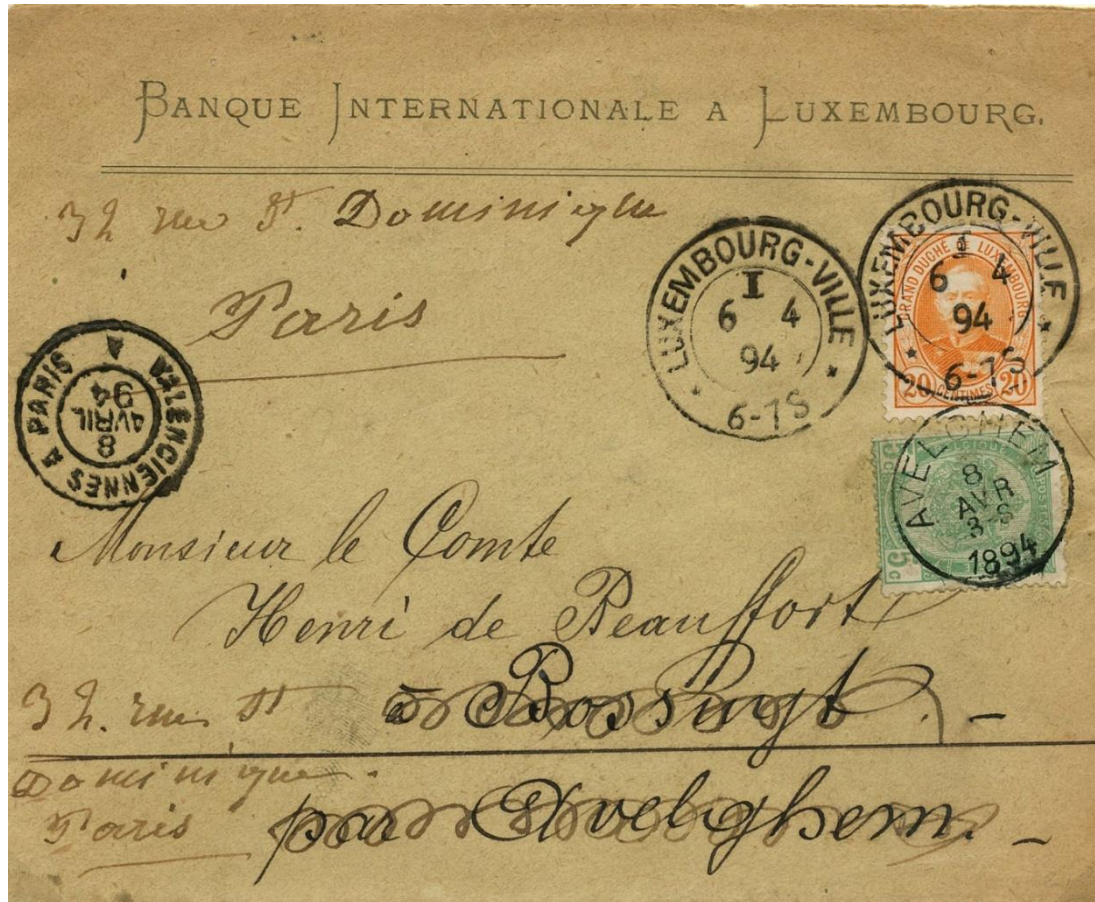 BANQUE INTERNATIONALE A LUXEMBOURG.
32 rue St. Dominique
Paris
LUXEMBOURG-VILLE
I
6 4
94
6-7S
LUXEMBOURG-VILLE
I
6 4
94
6-7S
GRAND DUCHÉ DE LUXEMBOURG
20 CENTIMES 20
VALENCIENNES A PARIS
A
8
AVRIL
94
BELGIQUE
5c 5c
AVELGHEM
8
AVR
3-S
1894
Monsieur le Comte
Henri de Beauffort
à Bossuyt. -
32. rue St
Dominique.
Paris
par Avelghem. -